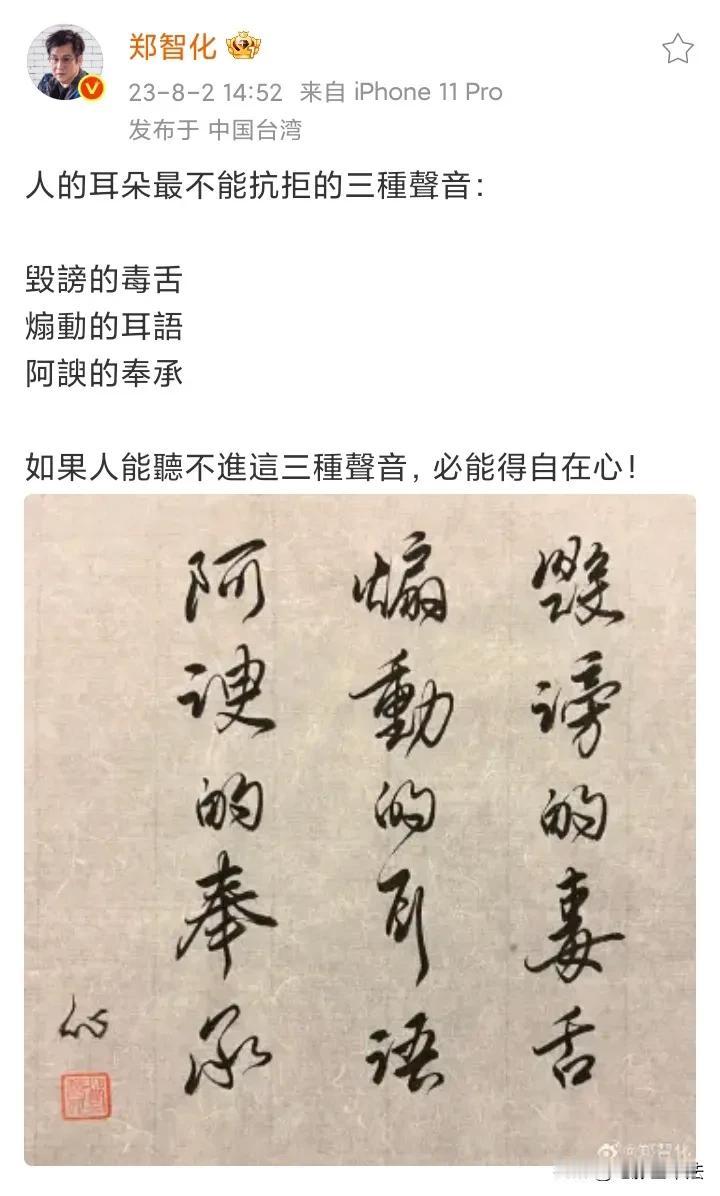 郑智化
23-8-2 14:52 来自 iPhone 11 Pro
发布于 中国台湾
人的耳朵最不能抗拒的三種聲音：
毀謗的毒舌
煽動的耳語
阿諛的奉承
如果人能聽不進這三種聲音，必能得自在心！
毀謗的毒舌
煽動的耳語
阿諛的奉承
@郑智化